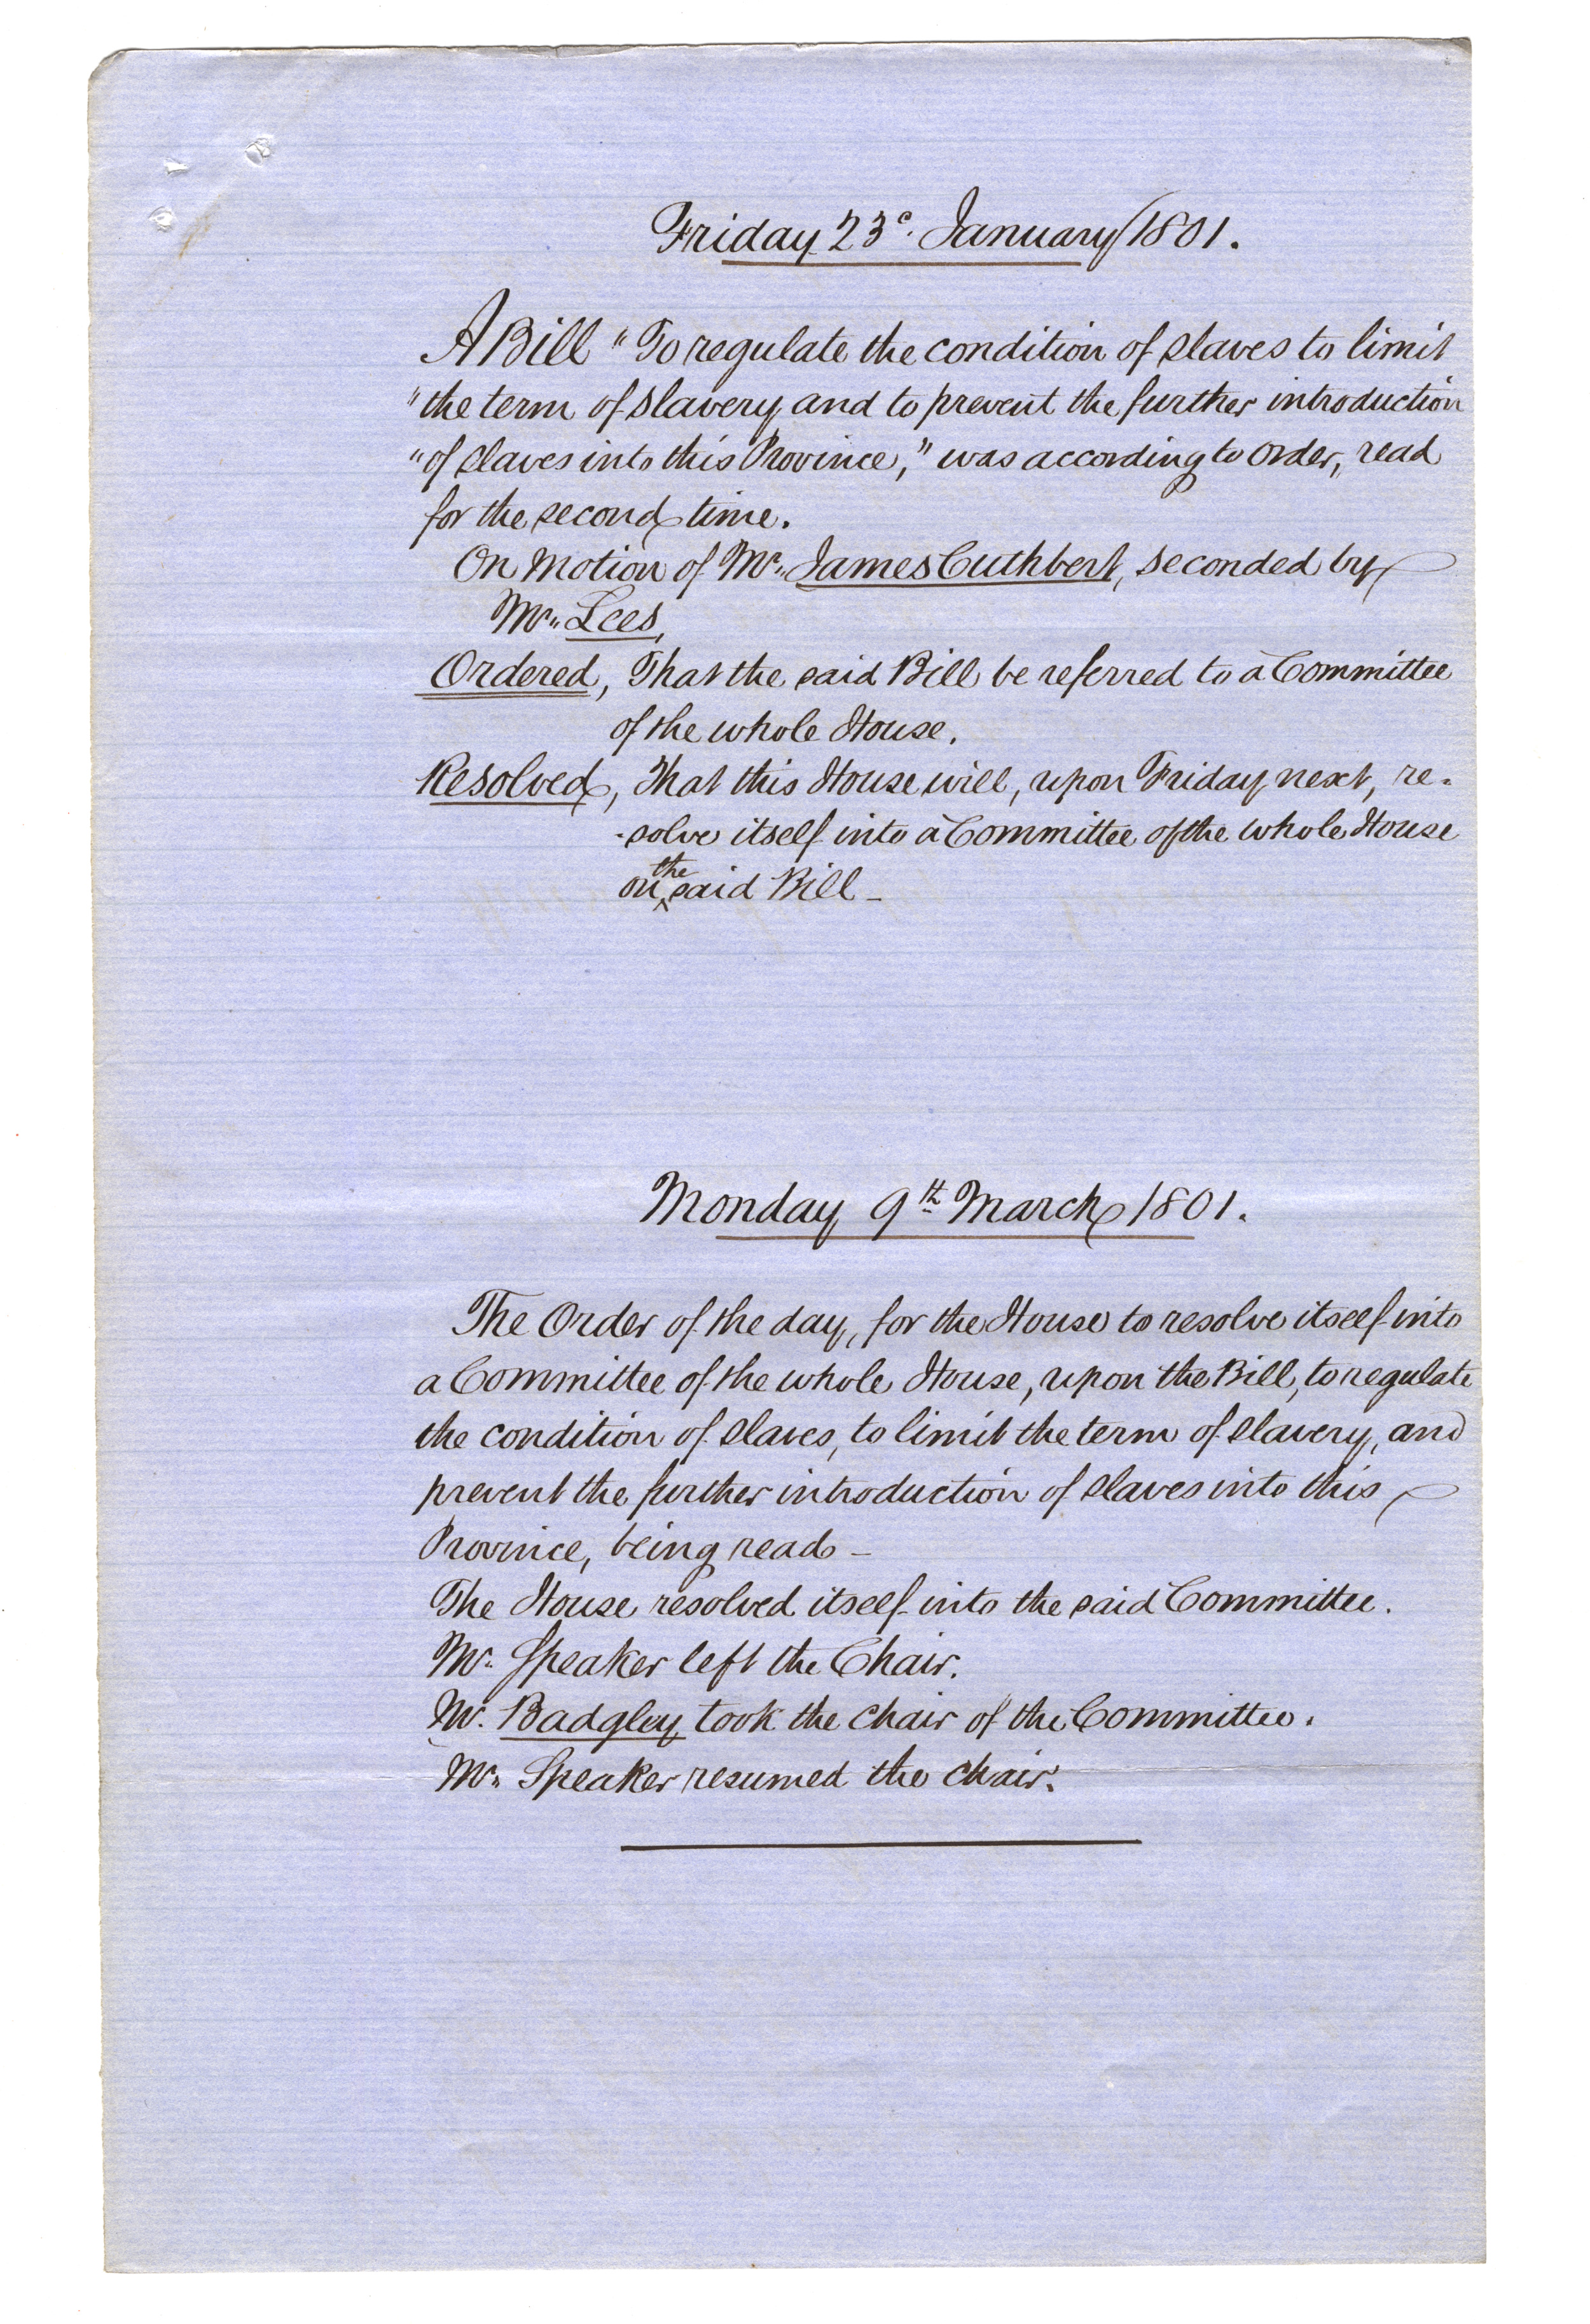 Friday 23d. January 1801.
A Bill "To regulate the condition of slaves to limit
"the term of slavery and to prevent the further introduction
"of slaves into this Province," was according to order, read
for the second time.
On Motion of Mr. James Cuthbert, seconded by
Mr. Lees,
Ordered, That the said Bill be referred to a Committee
of the whole House.
Resolved, That this House will, upon Friday next, re-
-solve itself into a Committee of the whole House
on the said Bill -
Monday 9th March 1801.
The Order of the day, for the House to resolve itself into
a Committee of the whole House, upon the Bill, to regulate
the condition of slaves, to limit the term of slavery, and
prevent the further introduction of slaves into this
Province, being read -
The House resolved itself into the said Committee.
Mr. Speaker left the Chair.
Mr. Badgley took the chair of the Committee.
Mr. Speaker resumed the chair.